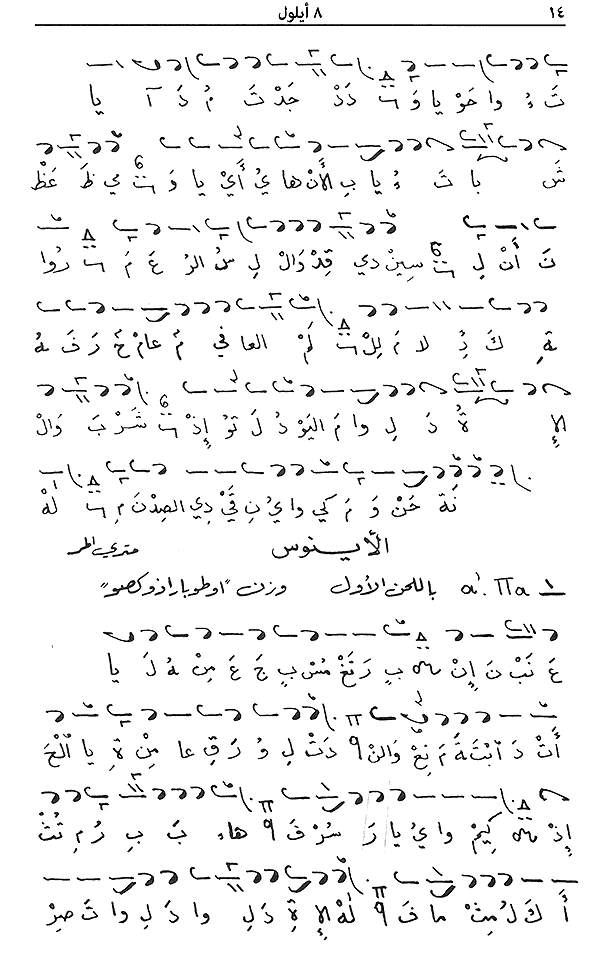 ١٤ ٨ أيلول
تَ ءُ وا حَوْ يا وَ دَدْ جَدْ تَ مُ دَ آ يا
شَ با تَ ءُ يا بِ الأَنْ ها يُ أَيْ يا وَ مي ظَ عَظْ
نَ أَنْ لِ سينْ دي قِدْ وَالْ لِ سُ الرُ عَ مَ رُوا
ةِ كَ ذِ لا مَ لِلْ لَمْ العا في مَ عامْ خَ رَ فَ هُ
الإِ ةُ دَ لِ وا مَ اليَوْ دُ لَ تو إِذْ شَرْ بَ وَالْ
نَةَ حَنْ وَ مَ كي وا يُ نِ قَيْ دي الصِدْ نَ مِ لَهْ
الأينوس متري المر
١ باللحن الأول وزن "اوطوباراذوكصو"
عَ نَبْ نَ إِنْ بِ رَتَغْ مُسْ بِ جَ عَ مِنْ هُ لَ يا
أَنْتْ دَ ابْتَ ةَ مَ نِعْ وَالنْ دَتْ لِ وُ رَ قِ عا مِنْ ةِ يا الْحَ
إِذْ كيمْ وا يُ يا رَ سُرْ فَ هاء بَ بِ رُ مِ تُثْ
أَ كَ لُ مِتْ ما فَ لَهْ الإِ ةِ دَ لِ وا دَ لِ وا تَ صِرْ